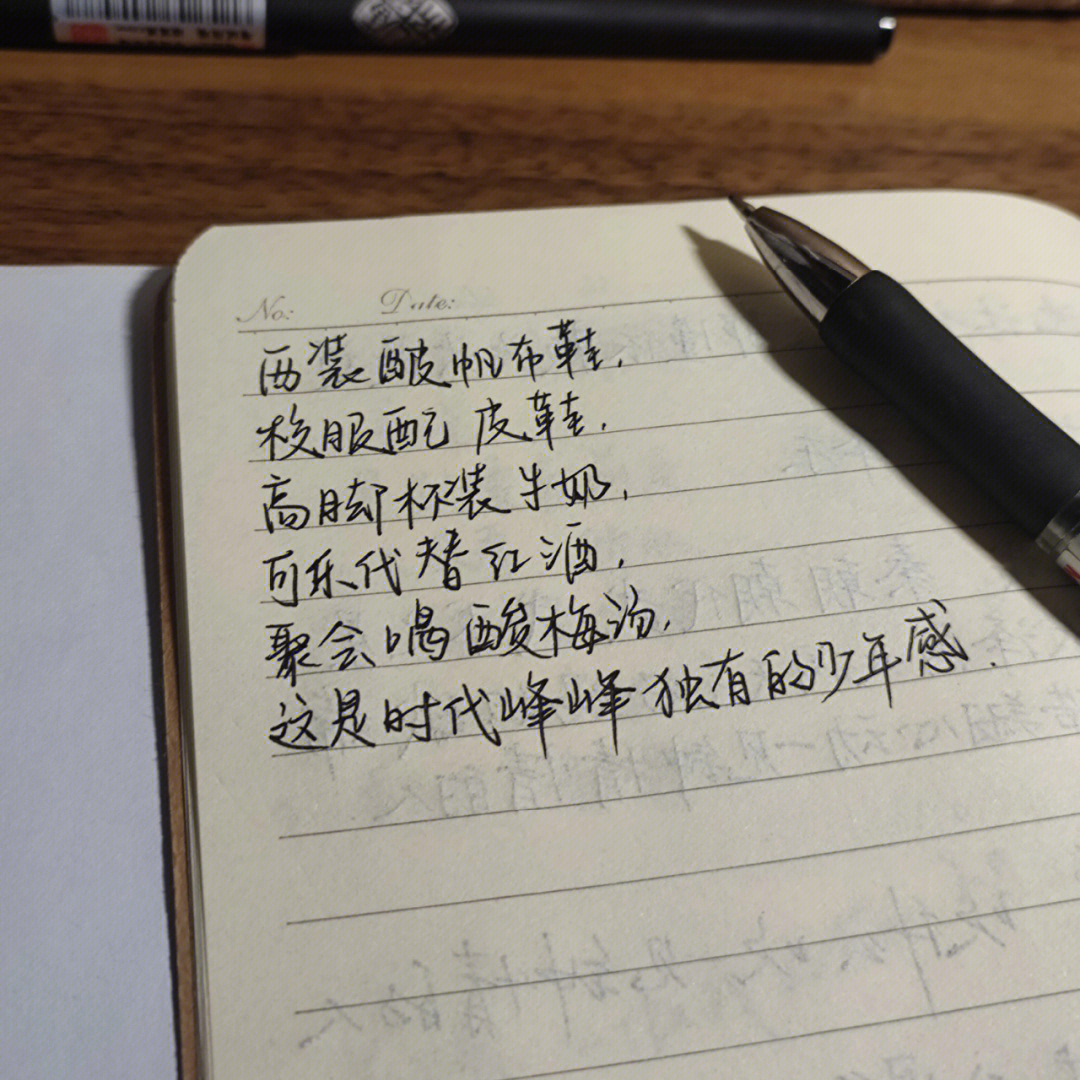 No: Date:
西装配帆布鞋.
校服配皮鞋.
高脚杯装牛奶.
可乐代替红酒.
聚会喝酸梅汤.
这是时代峰峰独有的少年感.